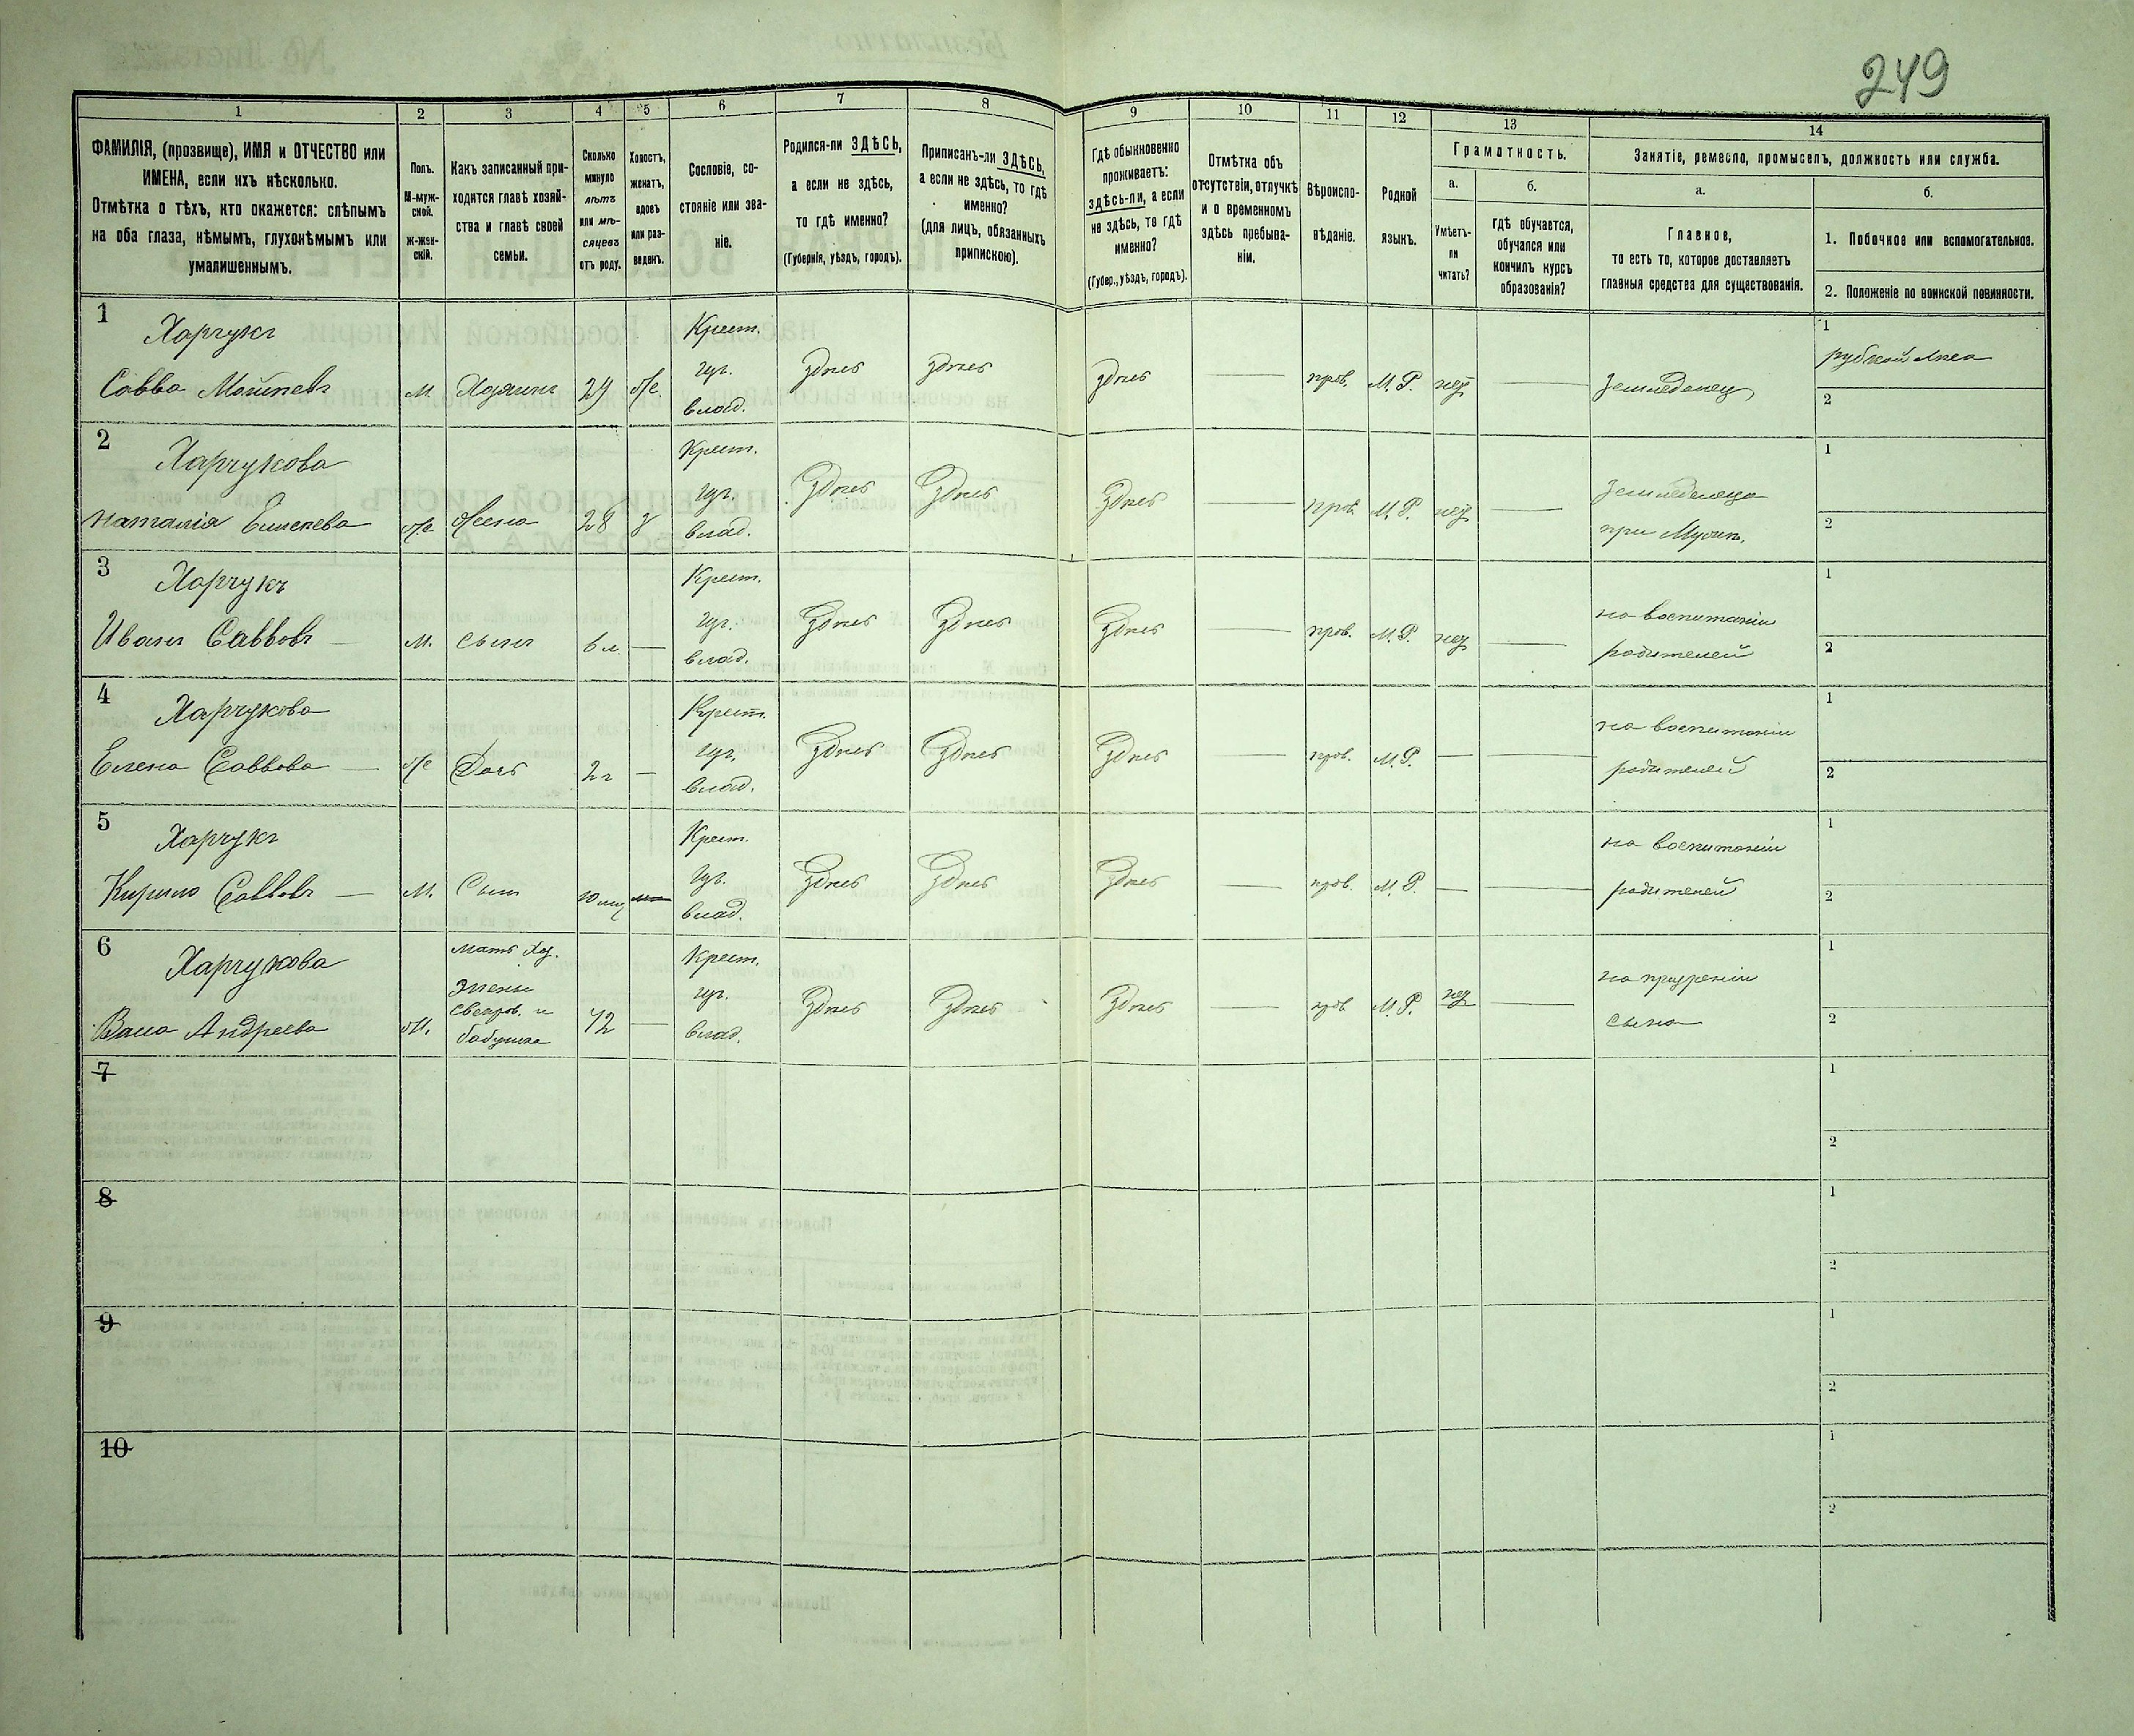 249
1
2
3
4
5
6
7
8
9
10
11
12
13
14
ФАМИЛІЯ, (прозвище), ИМЯ и ОТЧЕСТВО или
ИМЕНА, если ихъ нѣсколько.
Отмѣтка о тѣхъ, кто окажется: слѣпымъ
на оба глаза, нѣмымъ, глухонѣмымъ или
умалишеннымъ.
Полъ.
М-муж-
ской.
Ж-жен-
скій.
Какъ записанный при-
ходится главѣ хозяй-
ства и главѣ своей
семьи.
Сколько
минуло
лѣтъ
или мѣ-
сяцевъ
отъ роду.
Холостъ,
женатъ,
вдовъ
или раз-
веденъ.
Сословіе, со-
стояніе или зва-
ніе.
Родился-ли ЗДѢСЬ,
а если не здѣсь,
то гдѣ именно?
(Губернія, уѣздъ, городъ).
Приписанъ-ли ЗДѢСЬ,
а если не здѣсь, то гдѣ
именно?
(для лицъ, обязанныхъ
припискою).
Гдѣ обыкновенно
проживаетъ:
здѣсь-ли, а если
не здѣсь, то гдѣ
именно?
(Губер., уѣздъ, городъ).
Отмѣтка объ
отсутствіи, отлучкѣ
и о временномъ
здѣсь пребыва-
ніи.
Вѣроиспо-
вѣданіе.
Родной
языкъ.
Грамотность.
а.
б.
Умѣетъ-
ли
читать?
гдѣ обучается,
обучался или
кончилъ курсъ
образованія?
Занятіе, ремесло, промыселъ, должность или служба.
а.
б.
Главное,
то есть то, которое доставляетъ
главныя средства для существованія.
1. Побочное или вспомогательное.
2. Положеніе по воинской повинности.
1
Харчукъ
Крест.
1
рубкой лѣса
Савва
М.
Хозяинъ
29
ж.
влад.
здѣсь
здѣсь
здѣсь
прав.
М. Р.
нѣт
земледелец
2
2
Харчукова
Крест.
1
Наталія
ж
жена
28
з
влад.
здѣсь
здѣсь
здѣсь
прав
М. Р.
нѣт
при Мужѣ.
2
3
Харчукъ
Крест.
1
Иванъ Саввовъ
М.
сынъ
6 л.
влад.
здѣсь
здѣсь
здѣсь
прав.
М. Р.
нѣт
на воспитаніи
родителей
2
4
Харчукова
Крест.
1
Елена Саввова
ж
Дочь
2 г
влад.
здѣсь
здѣсь
здѣсь
прав.
М. Р.
на воспитаніи
родителей
2
5
Харчукъ
Крест.
1
Кирило Саввовъ
М.
Сынъ
10 мц
влад.
здѣсь
здѣсь
здѣсь
прав.
М. Р.
на воспитаніи
родителей
2
6
Харчукова
мать Хоз.
Крест.
1
Андреева
свекров. и
бабушка
72
влад.
здѣсь
здѣсь
здѣсь
прав
М. Р.
нѣт
на призреніи
сына
2
7
1
2
8
1
2
9
1
2
10
1
2